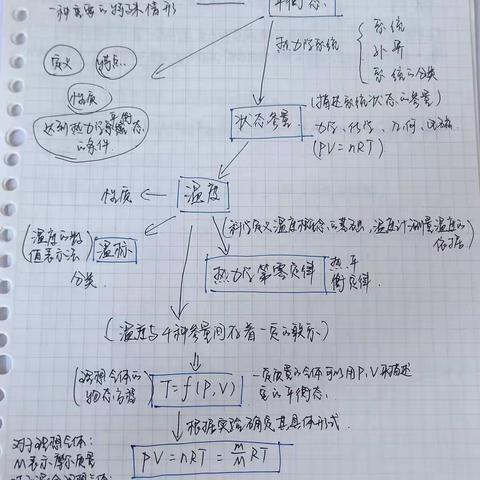 一种重要的特殊情形
平衡态
热力学系统
系统
外界
系统的分类
定义
特点
性质
达到热力学平衡态
的条件
状态参量
(描述系统状态的参量)
力学、化学、几何、电磁
(PV=nRT)
性质
温度
(温度的数
值表示法)
温标
分类
科学定义温度概念的基础,温度计测量温度的
依据
热力学第零定律
热平
衡定律
(温度与4种参量间存在着一定的联系)
(理想气体的
物态方程)
T=f(P,V)
一定质量的气体可以用P,V来描述
它的平衡态
根据实验确定其具体形式
对于理想气体:
M表示摩尔质量
PV=nRT=m/M RT